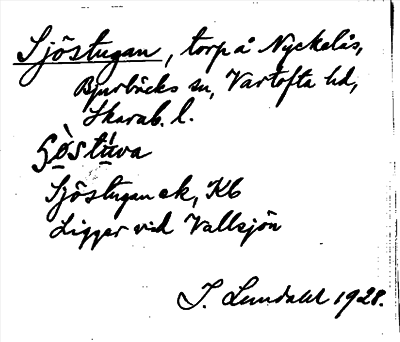 Sjöstugan, torp å Nyckelås,
Bjurbäcks sn, Vartofta hd,
Skarab. l.
Sjöstugan ek, Kb
Ligger vid Vallsjön
J. Lundahl 1928.